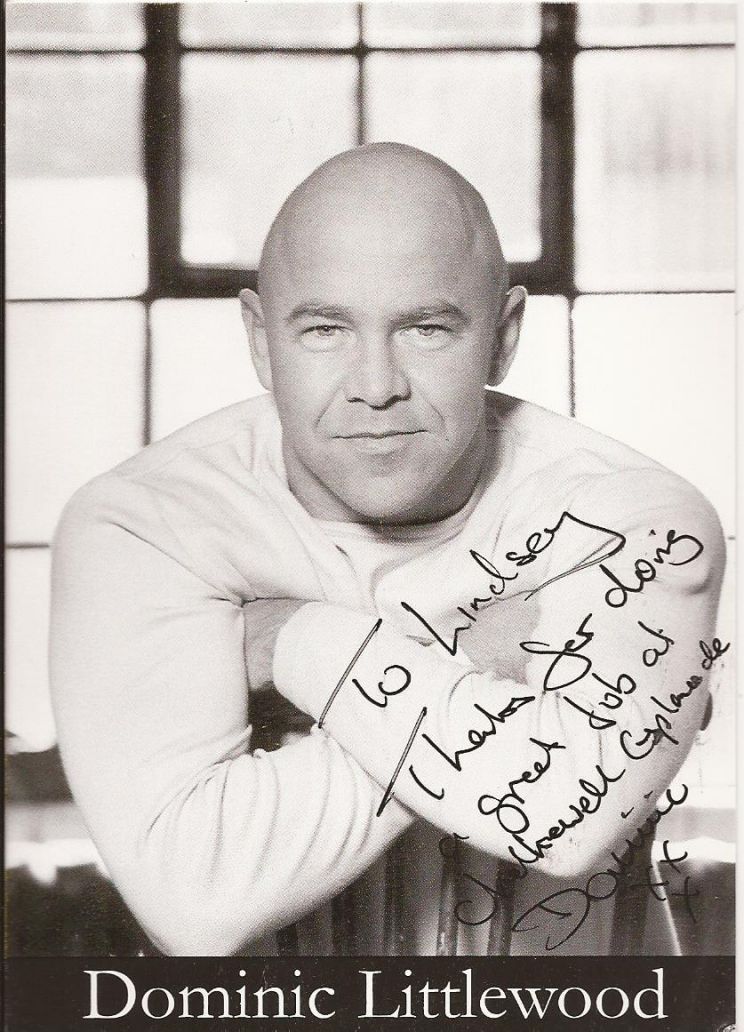 To Lindsey
Thanks for doing
a great Job at
Chalkwell Esplanade
Dominic
xxx
Dominic Littlewood